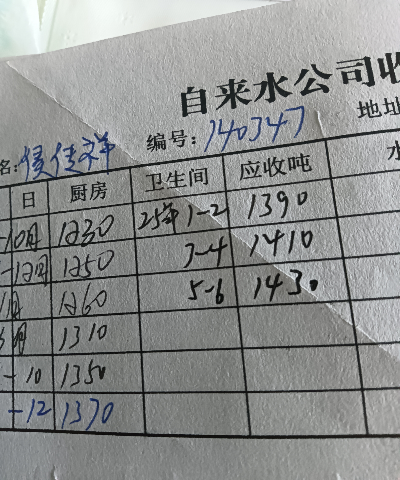 自来水公司收
名:侯佳祥 编号:140347 地址
日 厨房 卫生间 应收吨 水
-10月 1230 25年1-2 1390
-12月 1250 3-4 1410
月 1260 5-6 1430
月 1310
- 10 1350
-12 1370